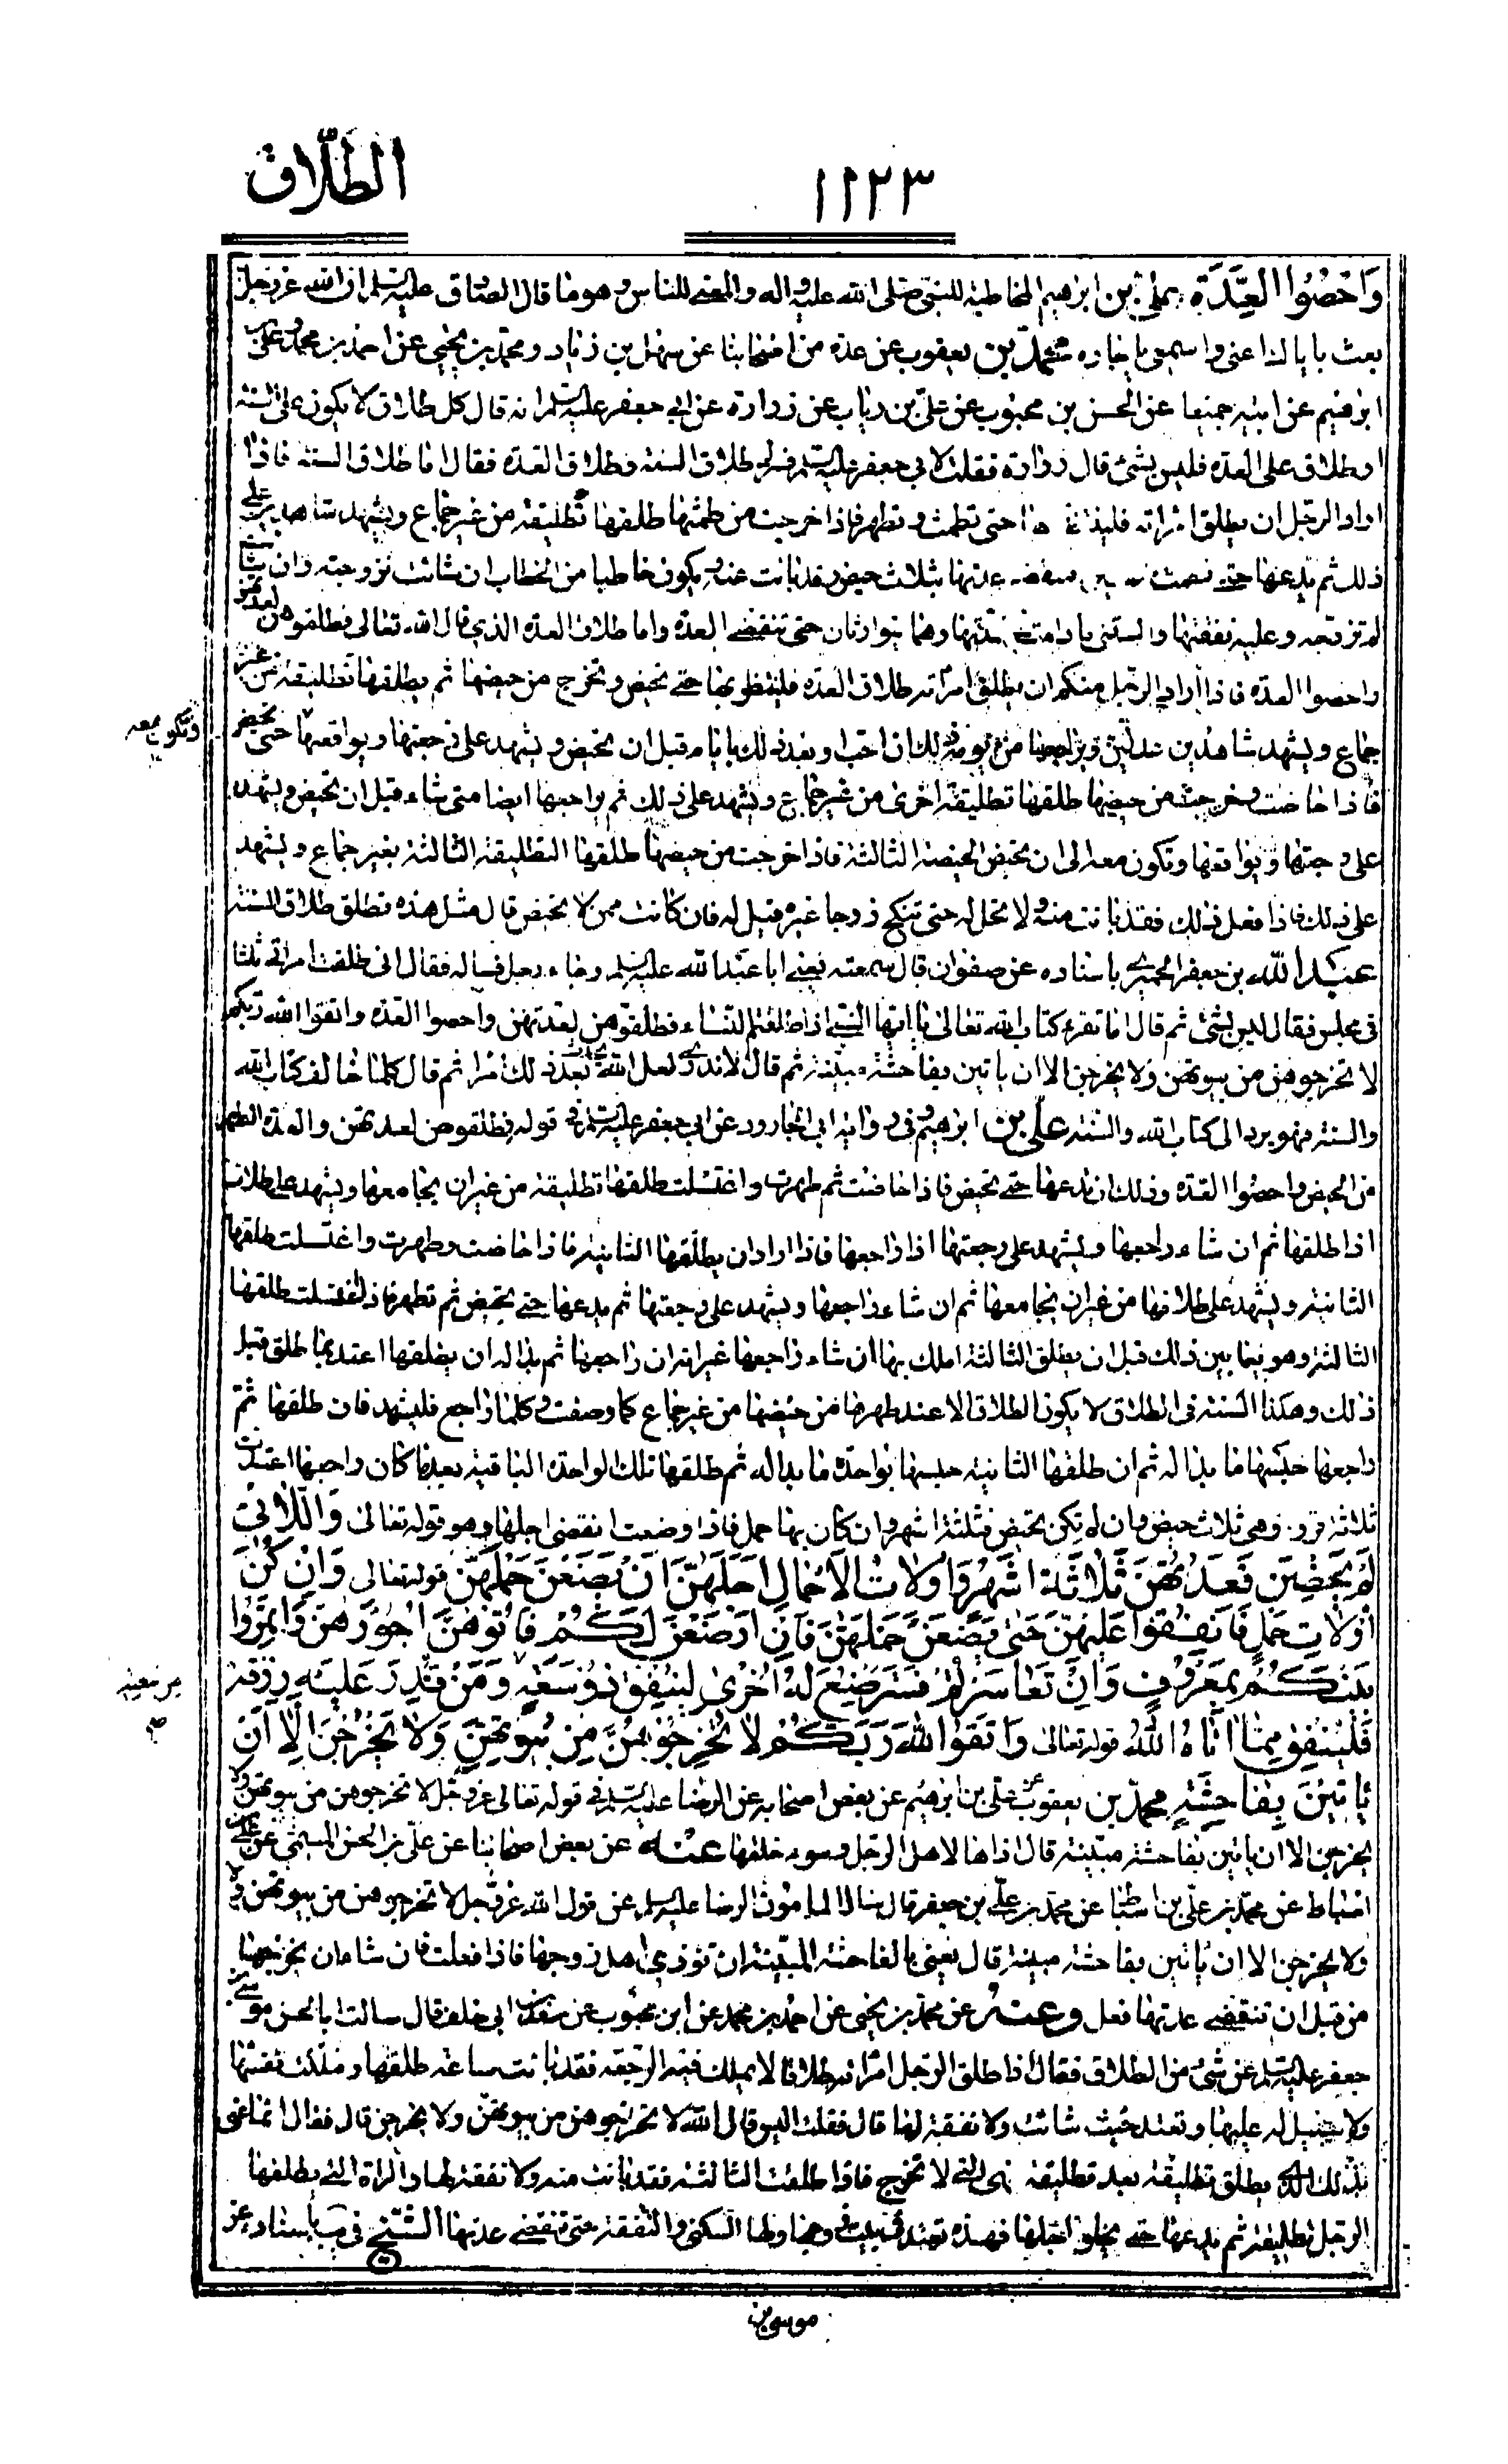 الطلاق
١١٢٣
وَاَحْصُوا الْعِدَّةَ علي بن ابرهيم المخاطبة للنبي صلى الله عليه واله والمعنى للناس وهو ما قال الصادق عليه السلم ان الله عز وجل
بعث باياك اعنى واسمعى يا جاره محمد بن يعقوب عن عدة من اصحابنا عن سهل بن زياد ومحمد بن يحيى عن احمد بن محمد وعلى بن
ابرهيم عن ابيه جميعا عن الحسن بن محبوب عن علي بن رياب عن زرارة عن ابى جعفر عليه السلم انه قال كل طلاق لا يكون على السنة
او طلاق على العدة فليس بشئ قال زرارة فقلت لابى جعفر عليه السلم فسر لى طلاق السنة وطلاق العدة فقال اما طلاق السنة فاذا
اراد الرجل ان يطلق امراته فلينتظر بها حتى تطمث وتطهر فاذا خرجت من طمثها طلقها تطليقة من غير جماع ويشهد شاهدين على
ذلك ثم يدعها حتى تطمث عدتها بثلاث حيض فقد بانت عنه ويكون خاطبا من الخطاب ان شائت تزوجته وان شائت
لم تزوجه وعليه نفقتها والسكنى ما دامت فى عدتها وهما يتوارثان حتى تنقضى العدة واما طلاق العدة الذى قال الله تعالى فطلقوهن لعدتهن
واحصوا العدة فاذا اراد الرجل منكم ان يطلق امراته طلاق العدة فلينتظر بها حتى تحيض وتخرج من حيضها ثم يطلقها تطليقة من غير
جماع ويشهد شاهدين عدلين ويراجعها من يومه ذلك ان احب او بعد ذلك بايام قبل ان تحيض ويشهد على رجعتها ويواقعها حتى تحيض
وتكون معه
فاذا حاضت وخرجت من حيضها طلقها تطليقة اخرى من غير جماع ويشهد على ذلك ثم يراجعها ايضا متى شاء قبل ان تحيض ويشهد
على رجعتها ويواقعها وتكون معه الى ان تحيض الحيضة الثالثة فاذا خرجت من حيضها طلقها التطليقة الثالثة بغير جماع ويشهد
على ذلك فاذا فعل ذلك فقد بانت منه ولا تحل له حتى تنكح زوجا غيره قيل له فان كانت ممن لا تحيض قال مثل هذه تطلق طلاق السنة
عبد الله بن جعفر الحميرى باسناده عن صفوان قال سمعته يعنى ابا عبد الله عليه السلم وجاء رجل فساله فقال انى طلقت امراتى ثلثا
فى مجلس فقال ليس بشئ ثم قال اما تقرء كتاب الله تعالى يا ايها النبى اذا طلقتم النساء فطلقوهن لعدتهن واحصوا العدة واتقوا الله ربكم
لا تخرجوهن من بيوتهن ولا يخرجن الا ان ياتين بفاحشة مبينة ثم قال لا تدرى لعل الله يحدث بعد ذلك امرا ثم قال كلما خالف كتاب الله
والسنة فهو يرد الى كتاب الله والسنة علي بن ابرهيم فى رواية ابى الجارود عن ابى جعفر عليه السلم فى قوله فطلقوهن لعدتهن والعدة الطهر
من الحيض واحصوا العدة وذلك ان يدعها حتى تحيض فاذا حاضت ثم طهرت واغتسلت طلقها تطليقة من غير ان يجامعها ويشهد على طلاقها
اذا طلقها ثم ان شاء راجعها ويشهد على رجعتها اذا راجعها فاذا اراد ان يطلقها الثانية فاذا حاضت وطهرت واغتسلت طلقها
الثانية ويشهد على طلاقها من غير ان يجامعها ثم ان شاء راجعها ويشهد على رجعتها ثم يدعها حتى تحيض ثم تطهر فاذا اغتسلت طلقها
الثالثة وهو فيما بين ذلك قبل ان يطلق الثالثة املك بها ان شاء راجعها غير انه ان راجعها ثم بدا له ان يطلقها اعتد بما طلق قبل
ذلك وهكذا السنة فى الطلاق لا يكون الطلاق الا عند طهرها من حيضها من غير جماع كما وصفت وكلما راجع فليشهد فان طلقها ثم
راجعها حبسها ما بدا له ثم ان طلقها الثانية حبسها بواحدة ما بدا له ثم طلقها تلك الواحدة الباقية بعد ما كان راجعها اعتدت
ثلاثة قروء وهى ثلاث حيض وان لم تكن تحيض فثلثة اشهر وان كان بها حمل فاذا وضعت انقضى اجلها وهو قوله تعالى وَاللَّائِي
لَمْ يَحِضْنَ فَعِدَّتُهُنَّ ثَلَاثَةُ اَشْهُرٍ وَاُولَاتُ الْاَحْمَالِ اَجَلُهُنَّ اَنْ يَضَعْنَ حَمْلَهُنَّ قوله تعالى وَاِنْ كُنَّ
اُولَاتِ حَمْلٍ فَاَنْفِقُوا عَلَيْهِنَّ حَتّٰى يَضَعْنَ حَمْلَهُنَّ فَاِنْ اَرْضَعْنَ لَكُمْ فَاٰتُوهُنَّ اُجُورَهُنَّ وَاْتَمِرُوا
بَيْنَكُمْ بِمَعْرُوفٍ وَاِنْ تَعَاسَرْتُمْ فَسَتُرْضِعُ لَهُ اُخْرٰى لِيُنْفِقْ ذُو سَعَةٍ وَمَنْ قُدِرَ عَلَيْهِ رِزْقُهُ
من سعته
فَلْيُنْفِقْ مِمَّا اٰتَاهُ اللّٰهُ قوله تعالى وَاتَّقُوا اللّٰهَ رَبَّكُمْ لَا تُخْرِجُوهُنَّ مِنْ بُيُوتِهِنَّ وَلَا يَخْرُجْنَ اِلَّا اَنْ
يَاْتِينَ بِفَاحِشَةٍ محمد بن يعقوب عن علي بن ابرهيم عن بعض اصحابه عن الرضا عليه السلم فى قوله تعالى عز وجل لا تخرجوهن من بيوتهن ولا
يخرجن الا ان ياتين بفاحشة مبينة قال اذاها لاهل الرجل وسوء خلقها عنه عن بعض اصحابنا عن علي بن الحسن التيمى عن علي بن
اسباط عن محمد بن علي بن جعفر قال سال المامون الرضا عليه السلم عن قول الله عز وجل لا تخرجوهن من بيوتهن
ولا يخرجن الا ان ياتين بفاحشة مبينة قال يعنى بالفاحشة المبينة ان توذى اهل زوجها فاذا فعلت فان شاء ان يخرجها
من قبل ان تنقضى عدتها فعل وعنه عن محمد بن يحيى عن احمد بن محمد عن ابن محبوب عن سعد بن ابى خلف قال سالت ابا الحسن موسى بن
جعفر عليه السلم عن شئ من الطلاق فقال اذا طلق الرجل امراته طلاقا لا يملك فيه الرجعة فقد بانت ساعة طلقها وملكت نفسها
ولا سبيل له عليها وتعتد حيث شائت ولا نفقة لها قال فقلت اليس قال الله لا تخرجوهن من بيوتهن ولا يخرجن قال فقال انما عنى
بذلك التى يطلق تطليقة بعد تطليقة فهى التى لا تخرج فاذا طلقت الثالثة فقد بانت منه ولا نفقة لها والمراة التى يطلقها
الرجل تطليقة ثم يدعها حتى يخلو اجلها فهذه تعتد فى بيت زوجها ولها السكنى والنفقة حتى تنقضى عدتها الشيخ فى يب باسناده عن
موسى بن